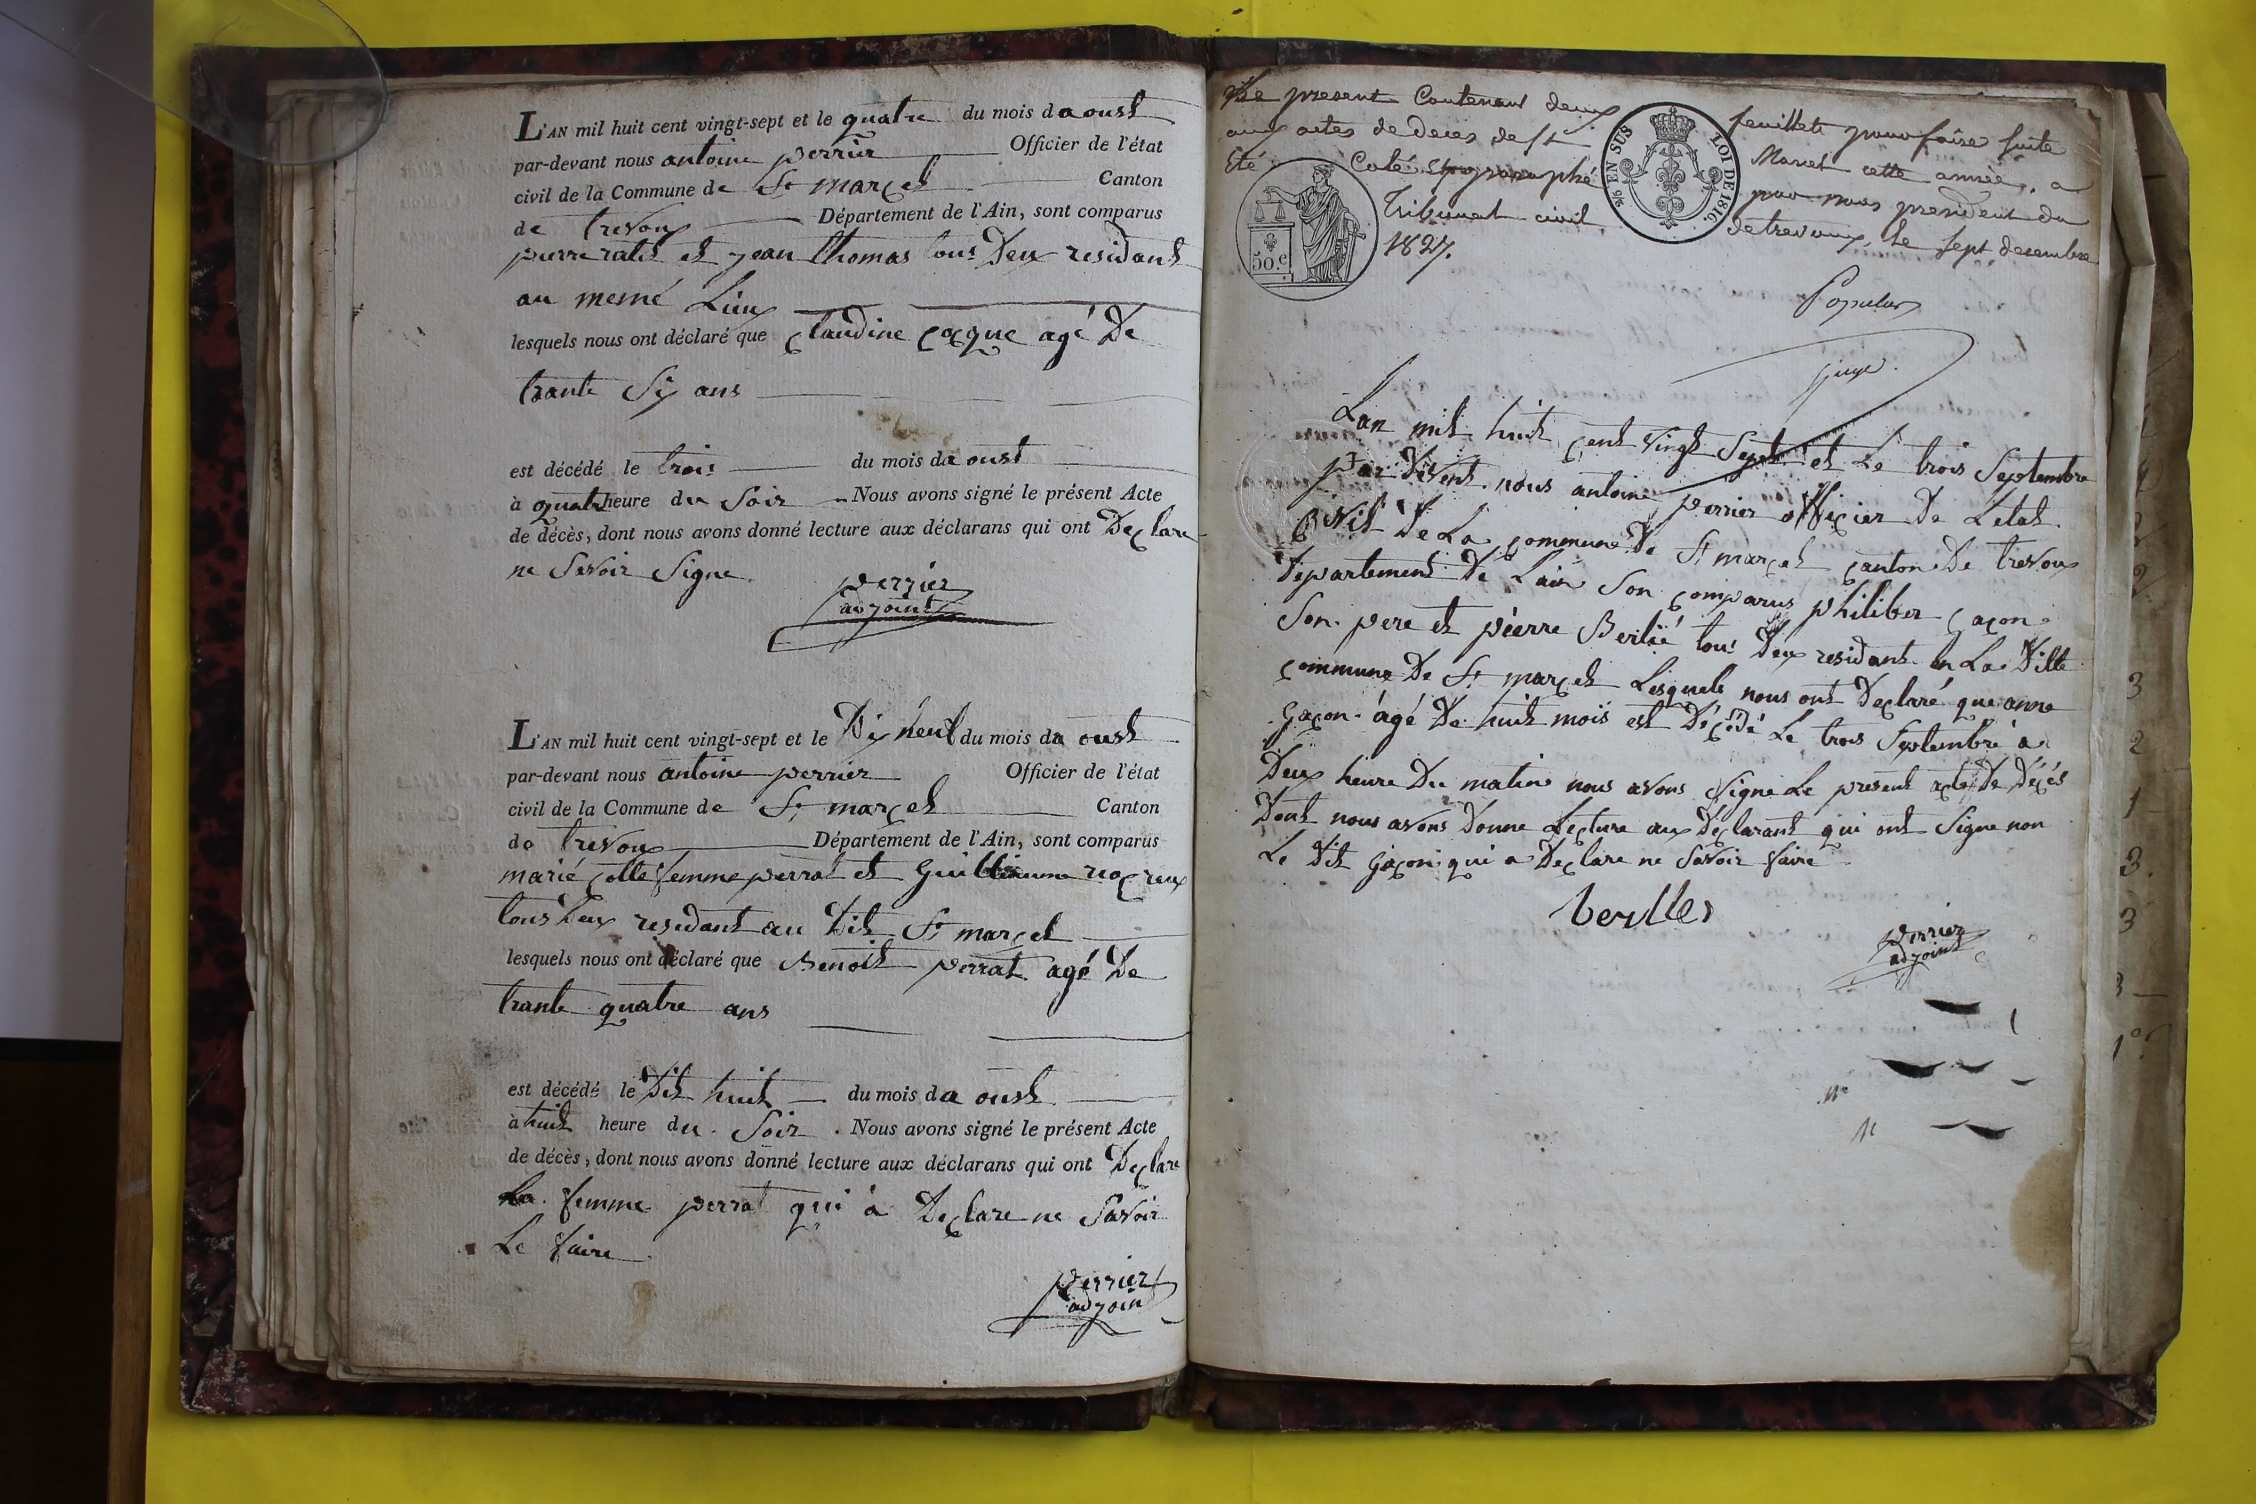 L'AN mil huit cent vingt-sept et le quatre du mois daoust
par-devant nous antoine perrier Officier de l'état
civil de la Commune de St marcel Canton
de trevoux Département de l'Ain, sont comparus
pierre ratit et jean thomas tous Deux residant
au memé Lieu
lesquels nous ont déclaré que claudine coque agé De
trante Six ans
est décédé le trois du mois da oust
à quatre heure du Soir Nous avons signé le présent Acte
de décès, dont nous avons donné lecture aux déclarans qui ont Declare
ne Savoir Signe.
perrier
adjoint
L'AN mil huit cent vingt-sept et le Dix neuf du mois da oust
par-devant nous antoine perrier Officier de l'état
civil de la Commune de St marcel Canton
de trevoux Département de l'Ain, sont comparus
marié colle femme perrat et Guilleaume
tous Deux residant au Dit St marcel
lesquels nous ont déclaré que Benoit perrat agé De
trante quatre ans
est décédé le Dit huit du mois da oust
à huit heure du Soir. Nous avons signé le présent Acte
de décès, dont nous avons donné lecture aux déclarans qui ont Declare
La femme perrat qui á Declare ne Savoir
Le faire
perrier
adjoint
Le present Contenant deux feuillets pour faire suite
aux actes de Deces de St Marcel cette année, a
Eté Coté et paraphé par nous president du
Tribunal civil de trevoux, le sept decembre
1827.
9/10 EN SUS
LOI DE 1816.
50.c
Populus
juge.
Lan mil huit cent vingt Sept et Le trois Septembre
par Devent nous antoine perrier officier De Letat
Civil De La commune De St marcel canton De trevoux
Departement De Lain Son comparus philiber Gacon
Son pere et pierre Berlié tous Deux residant en La Ditte
commune De St marcel Lesquels nous ont Declaré que anne
Gacon agé De huit mois est Décédé Le trois Septembré a
Deux heure Du matin nous avons Signe Le present acte De Décés
Dont nous avons Donne Lecture aux Declarant qui ont Signe non
Le Dit Gacon qui a Declare ne Savoir faire
perrier
adjoint
3
2
1
3.
3
3
1°